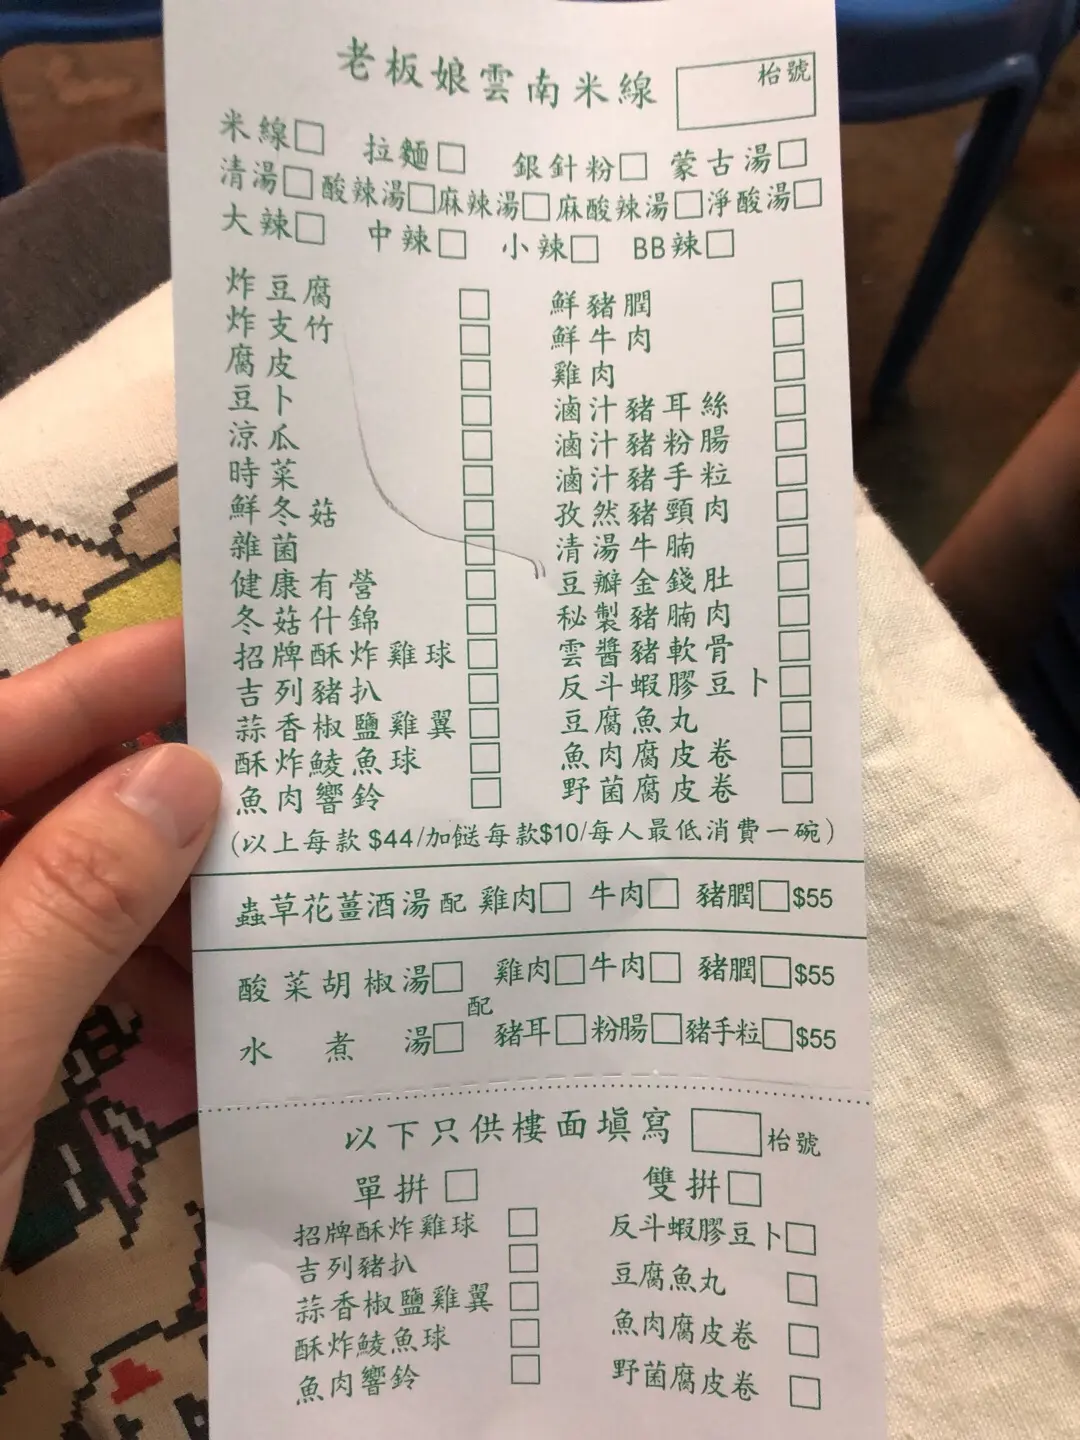 老板娘雲南米線 枱號
米線□ 拉麵□ 銀針粉□ 蒙古湯□
清湯□ 酸辣湯□ 麻辣湯□ 麻酸辣湯□ 淨酸湯□
大辣□ 中辣□ 小辣□ BB辣□
炸豆腐 □
炸支竹 □
腐皮 □
豆卜 □
涼瓜 □
時菜 □
鮮冬菇 □
雜菌 □
健康有營 □
冬菇什錦 □
招牌酥炸雞球 □
吉列豬扒 □
蒜香椒鹽雞翼 □
酥炸鯪魚球 □
魚肉響鈴 □
鮮豬膶 □
鮮牛肉 □
雞肉 □
滷汁豬耳絲 □
滷汁豬粉腸 □
滷汁豬手粒 □
孜然豬頸肉 □
清湯牛腩 □
豆瓣金錢肚 □
秘製豬腩肉 □
雲醬豬軟骨 □
反斗蝦膠豆卜 □
豆腐魚丸 □
魚肉腐皮卷 □
野菌腐皮卷 □
(以上每款 $44/加餸每款$10/每人最低消費一碗)
蟲草花薑酒湯 配 雞肉□ 牛肉□ 豬膶□ $55
酸菜胡椒湯□ 雞肉□ 牛肉□ 豬膶□ $55
配
水煮湯□ 豬耳□ 粉腸□ 豬手粒□ $55
以下只供樓面填寫 □ 枱號
單拼 □ 雙拼 □
招牌酥炸雞球 □
吉列豬扒 □
蒜香椒鹽雞翼 □
酥炸鯪魚球 □
魚肉響鈴 □
反斗蝦膠豆卜 □
豆腐魚丸 □
魚肉腐皮卷 □
野菌腐皮卷 □